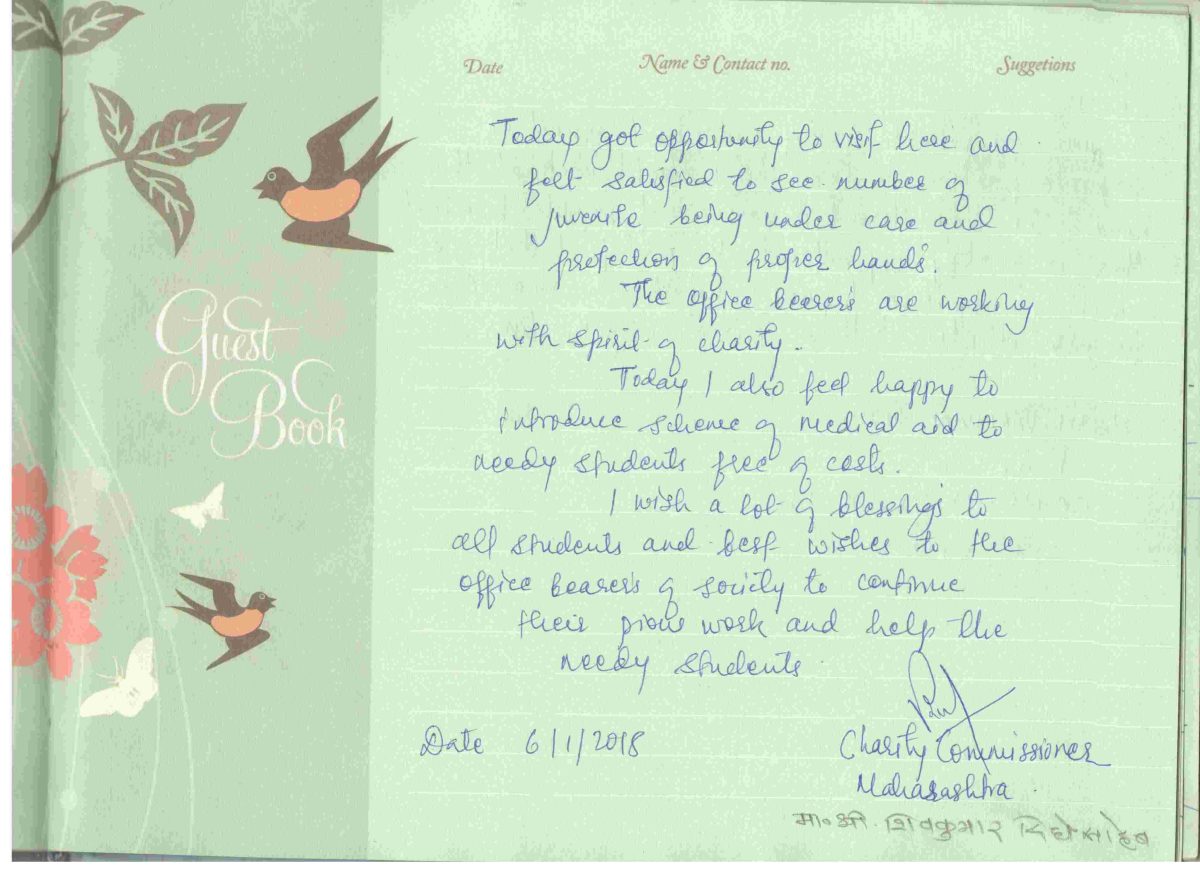 Guest
Book
Date Name & Contact no. Suggetions
Today got opportunity to visit here and
felt satisfied to see number of
juvenile being under care and
protection of proper hands.
The office bearers are working
with spirit of charity.
Today I also feel happy to
introduce scheme of medical aid to
needy students free of costs.
I wish a lot of blessings to
all students and best wishes to the
office bearers of society to continue
their pious work and help the
needy students.
Date 6/1/2018
Charity Commissioner
Maharashtra
मा०श्री. शिवकुमार साहेब